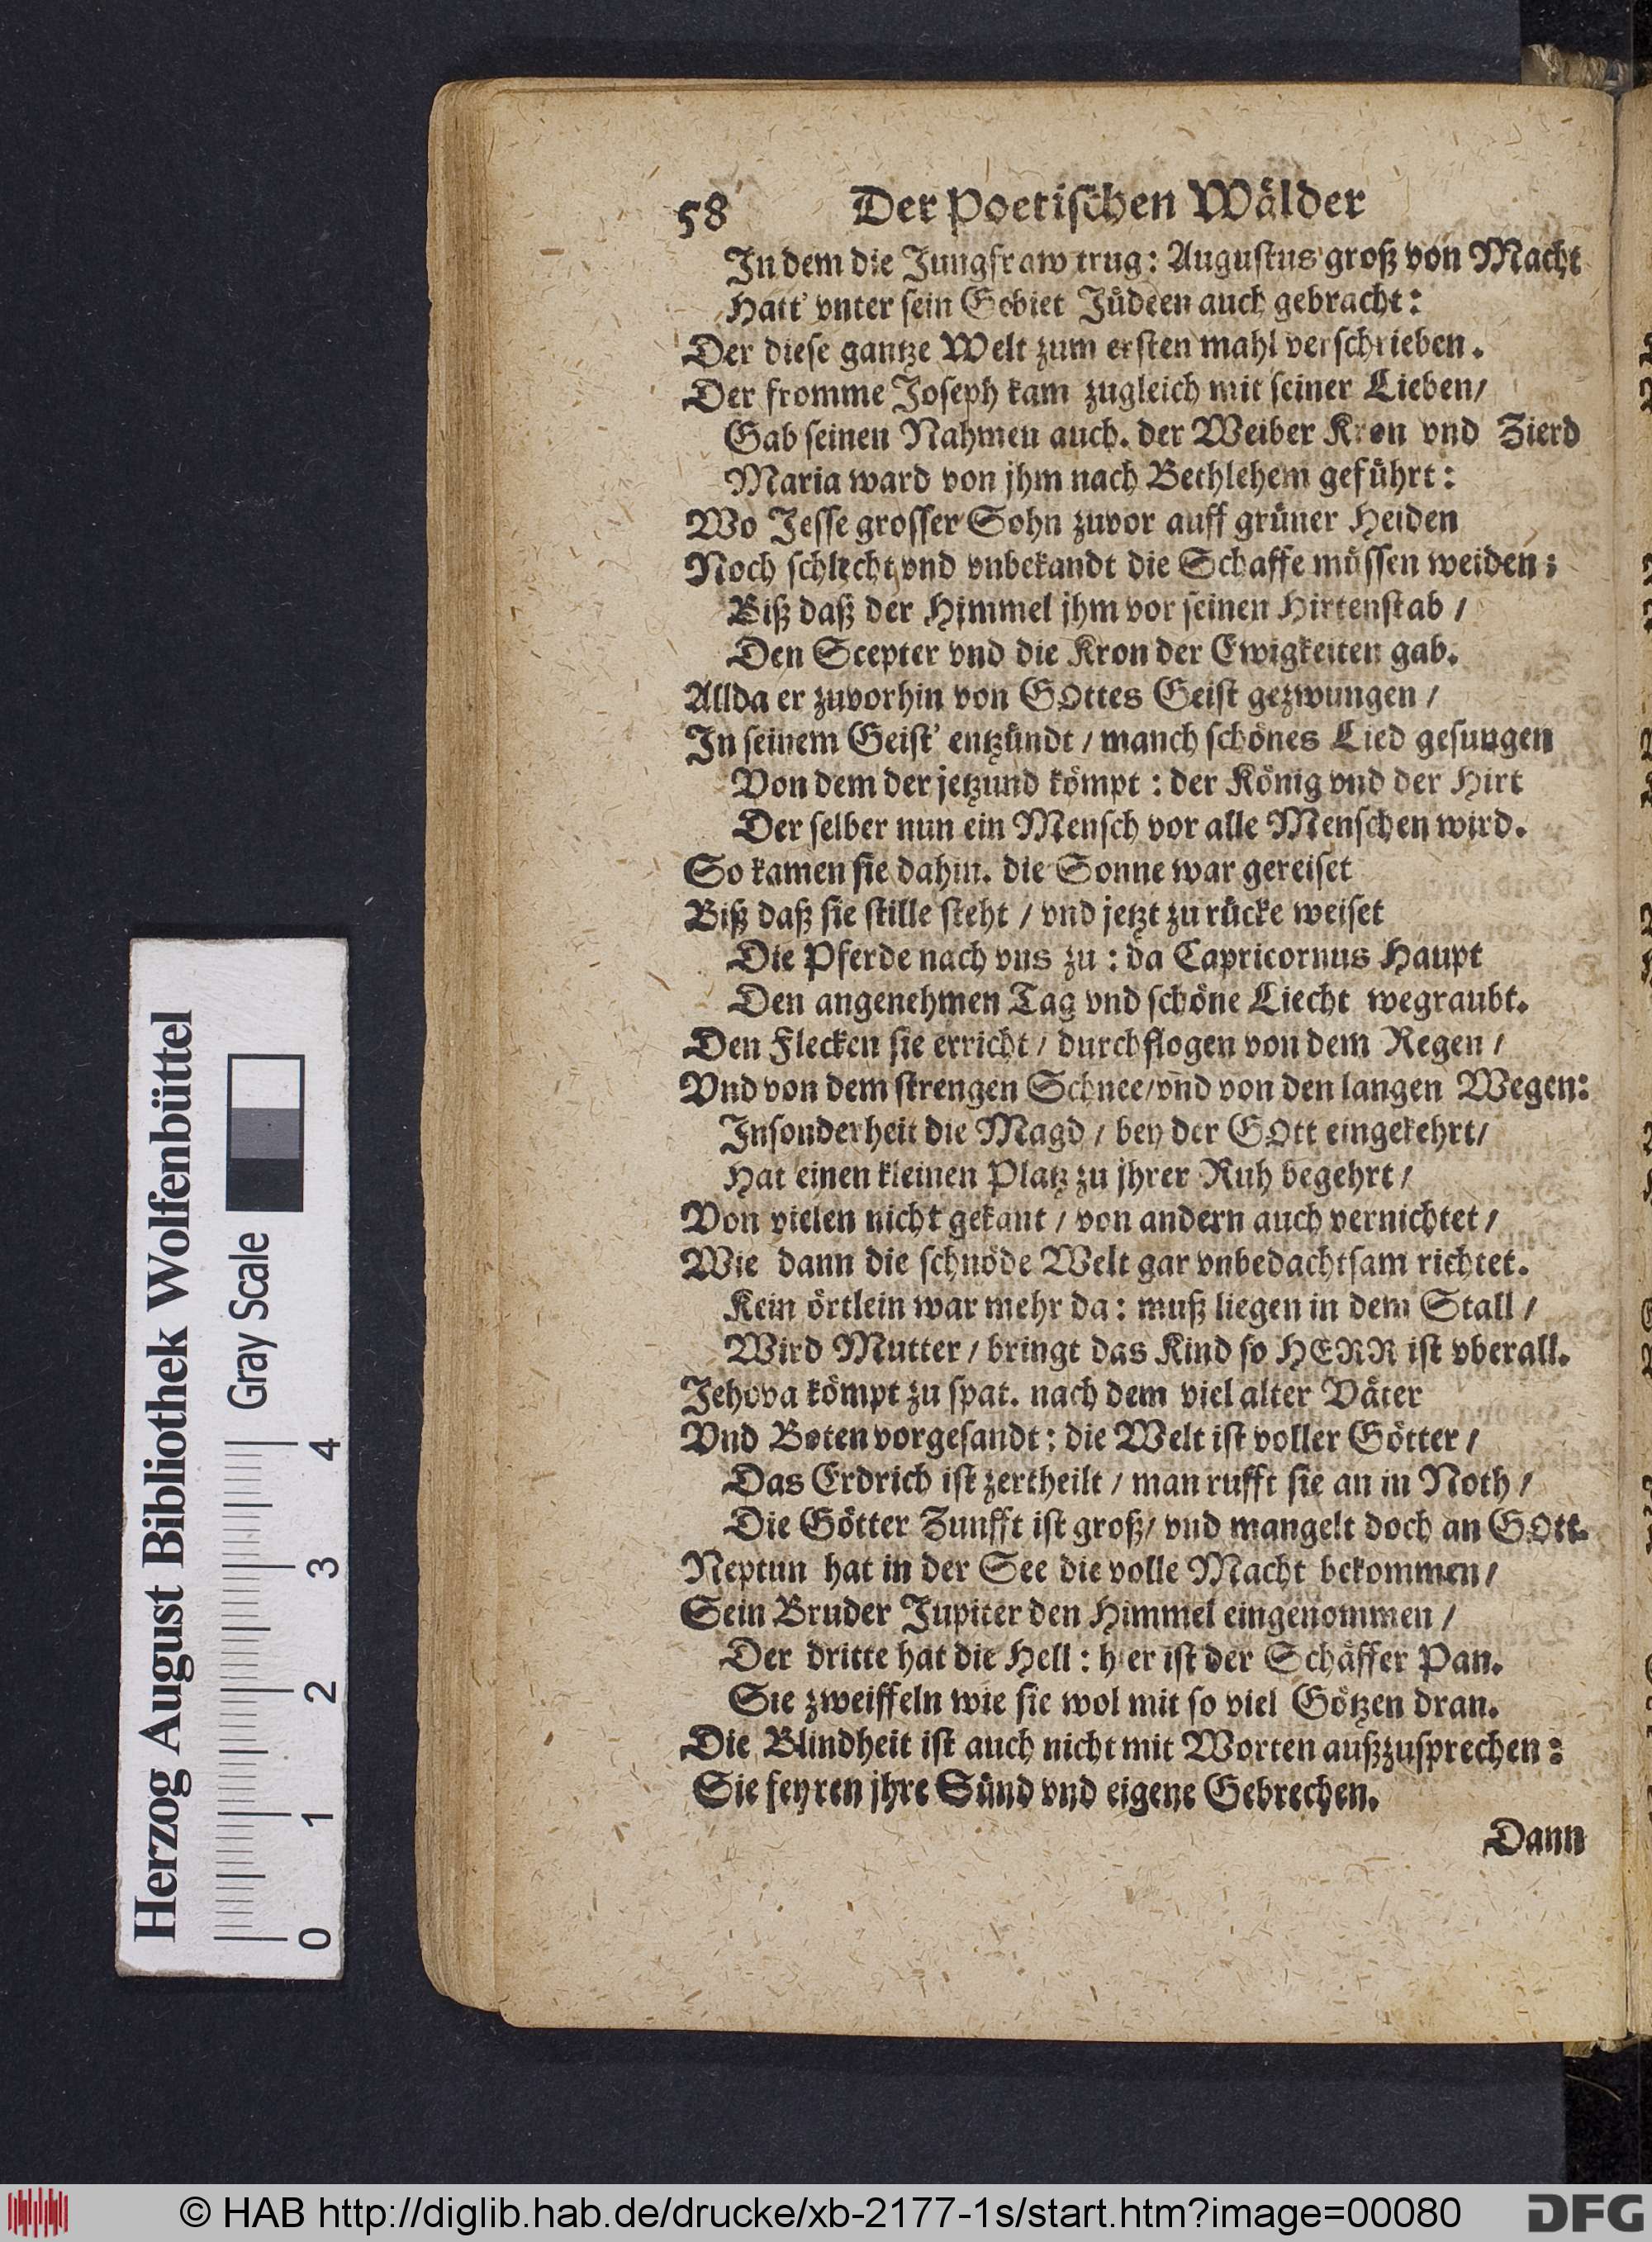 58 Der Poetischen Wälder
In dem die Jungfraw trug: Augustus groß von Macht
Hatt' vnter sein Gebiet Jüdeen auch gebracht:
Der diese gantze Welt zum ersten mahl verschrieben.
Der fromme Joseph kam zugleich mit seiner Lieben/
Gab seinen Nahmen auch. der Weiber Kron vnd Zierd
Maria ward von jhm nach Bethlehem geführt:
Wo Jesse grosser Sohn zuvor auff grüner Heiden
Noch schlecht vnd vnbekandt die Schaffe müssen weiden;
Biß daß der Himmel jhm vor seinen Hirtenstab /
Den Scepter vnd die Kron der Ewigkeiten gab.
Allda er zuvorhin von GOttes Geist gezwungen /
In seinem Geist' entzündt / manch schönes Lied gesungen
Von dem der jetzund kömpt : der König vnd der Hirt
Der selber nun ein Mensch vor alle Menschen wird.
So kamen sie dahin. die Sonne war gereiset
Biß daß sie stille steht / vnd jetzt zu rücke weiset
Die Pferde nach vns zu : da Capricornus Haupt
Den angenehmen Tag vnd schöne Liecht wegraubt.
Den Flecken sie erricht / durchflogen von dem Regen /
Vnd von dem strengen Schnee/vnd von den langen Wegen:
Insonderheit die Magd / bey der GOtt eingekehrt/
Hat einen kleinen Platz zu jhrer Ruh begehrt /
Von vielen nicht gekant / von andern auch vernichtet /
Wie dann die schnöde Welt gar vnbedachtsam richtet.
Kein örtlein war mehr da : muß liegen in dem Stall /
Wird Mutter / bringt das Kind so HERR ist vberall.
Jehova kömpt zu spat. nach dem viel alter Väter
Vnd Boten vorgesandt : die Welt ist voller Götter /
Das Erdrich ist zertheilt / man rufft sie an in Noth /
Die Götter Zunfft ist groß/ vnd mangelt doch an GOtt.
Neptun hat in der See die volle Macht bekommen /
Sein Bruder Jupiter den Himmel eingenommen /
Der dritte hat die Hell : hier ist der Schäffer Pan.
Sie zweiffeln wie sie wol mit so viel Götzen dran.
Die Blindheit ist auch nicht mit Worten außzusprechen :
Sie feyren jhre Sünd vnd eigene Gebrechen.
Dann
Herzog August Bibliothek Wolfenbüttel
Gray Scale
0 1 2 3 4
© HAB http://diglib.hab.de/drucke/xb-2177-1s/start.htm?image=00080
DFG